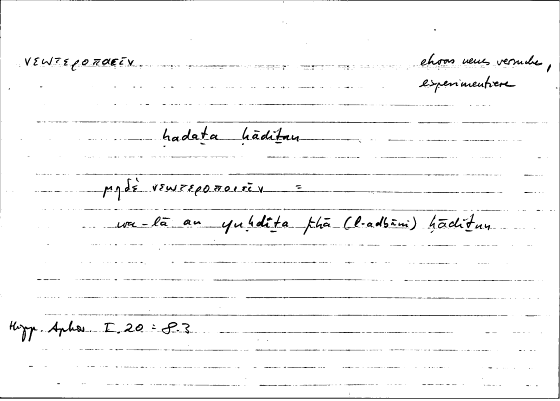 νεωτεροποιεῖν
etwas neues versuchen,
experimentiere
ḥadaṯa ḥādiṯun
μηδὲ νεωτεροποιεῖν =
wa-lā an yuḥdiṯa fīhā (l-adbāni) ḥādiṯun
Hipp. Aphor I.20 = 8.3